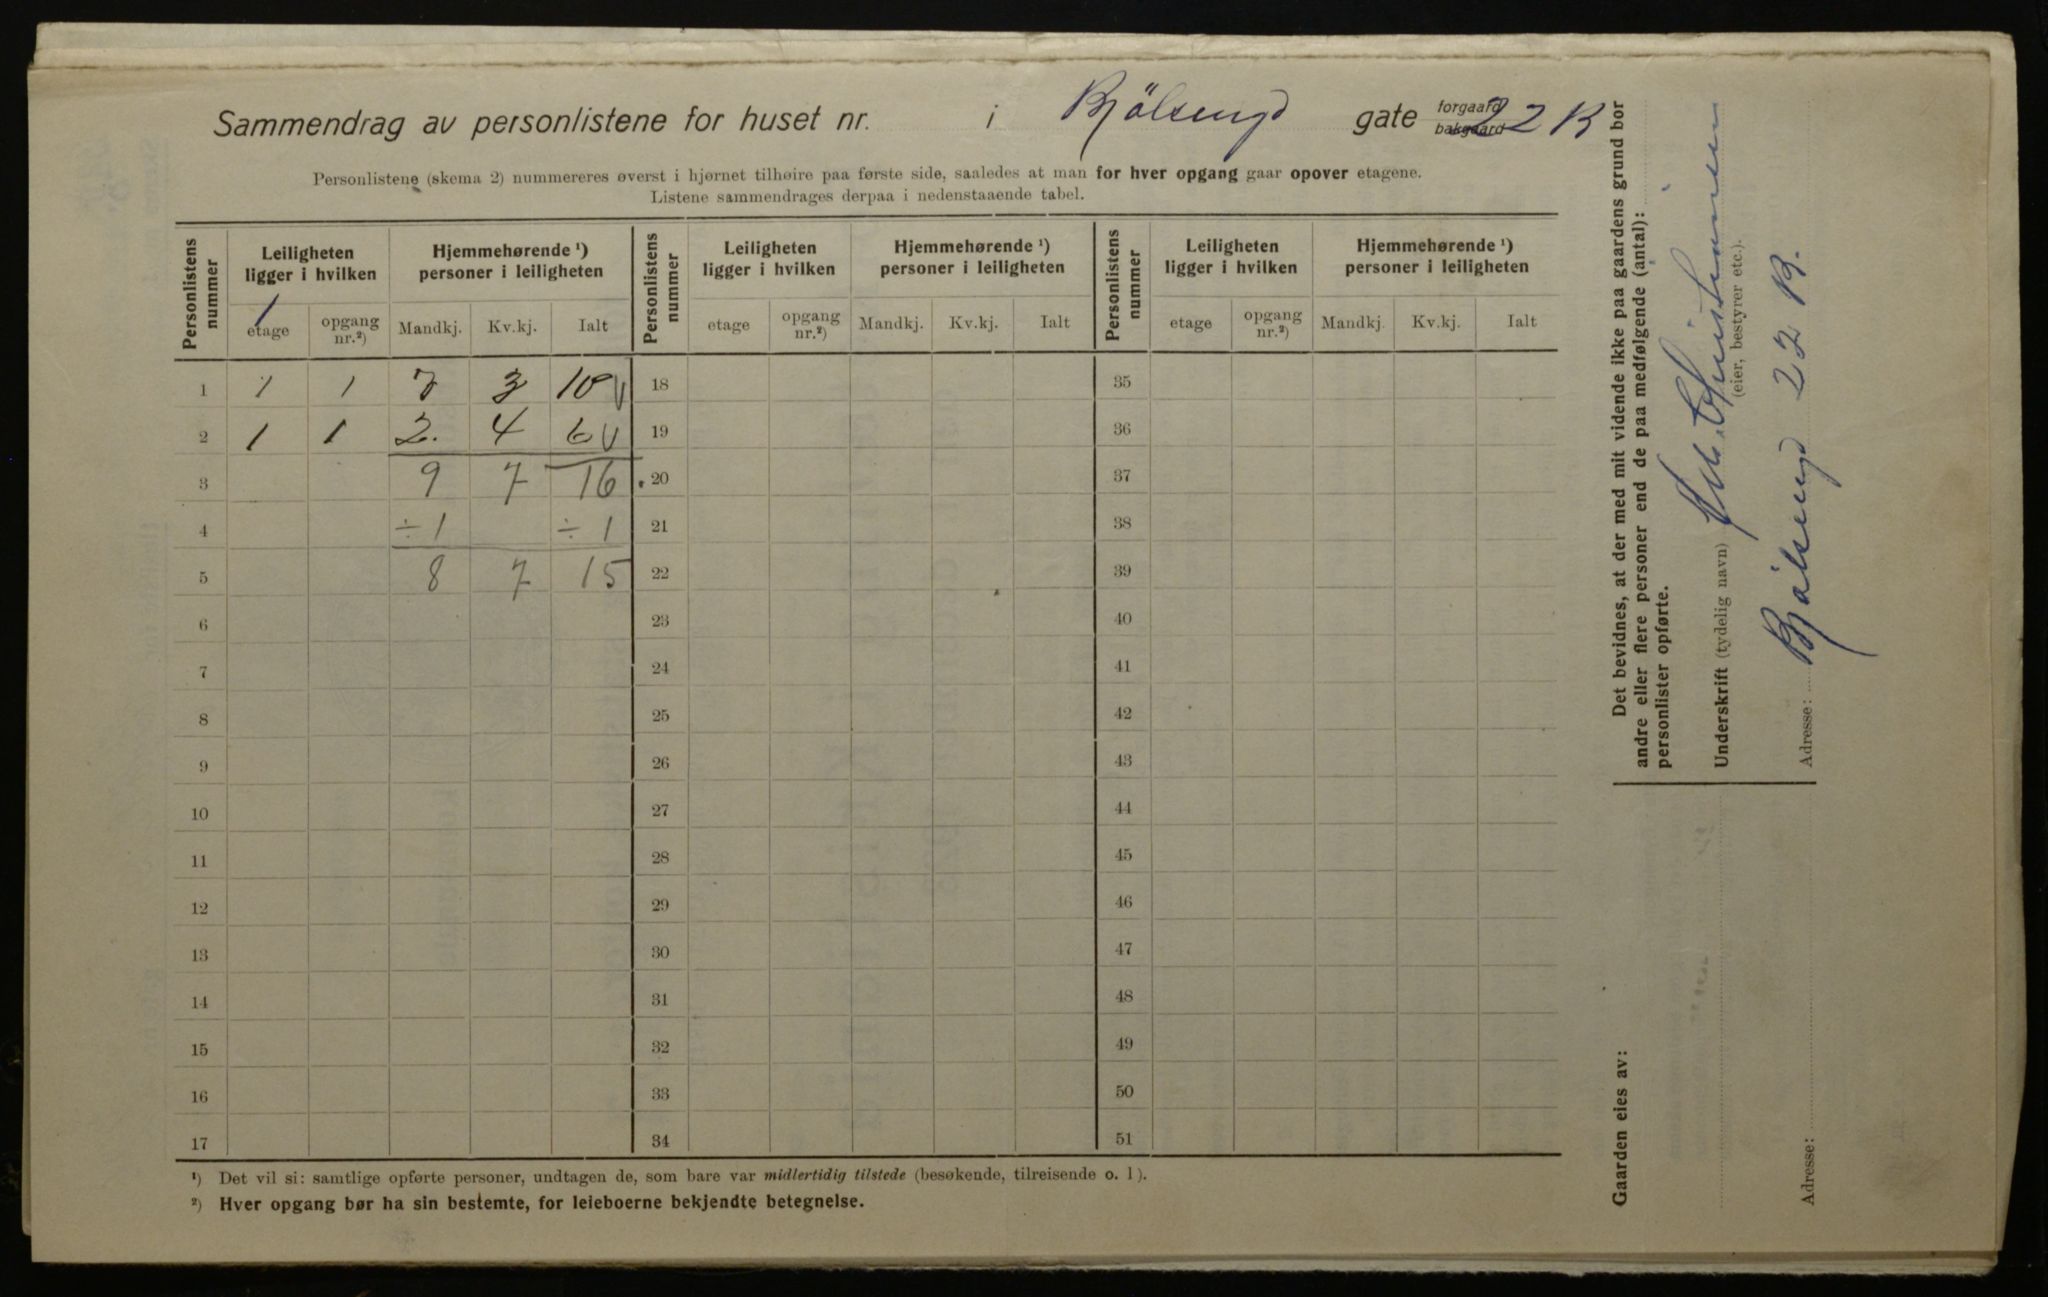 Sammendrag av personlistene for huset nr. i Bjölsengd gate forgaard bakgaard 22 B
Personlistene (skema 2) nummereres øverst i hjørnet tilhøire paa første side, saaledes at man for hver opgang gaar opover etagene.
Listene sammendrages derpaa i nedenstaaende tabel.
Personlistens nummer
Leiligheten ligger i hvilken
Hjemmehørende ¹) personer i leiligheten
Personlistens nummer
Leiligheten ligger i hvilken
Hjemmehørende ¹) personer i leiligheten
Personlistens nummer
Leiligheten ligger i hvilken
Hjemmehørende ¹) personer i leiligheten
1
etage opgang nr.²) Mandkj. Kv.kj. Ialt etage opgang nr.²) Mandkj. Kv.kj. Ialt etage opgang nr.²) Mandkj. Kv.kj. Ialt
1 1 1 7 3 10 V 18 35
2 1 1 2. 4 6 V 19 36
3 9 7 16 20 37
4 ÷1 ÷1 21 38
5 8 7 15 22 39
6 23 40
7 24 41
8 25 42
9 26 43
10 27 44
11 28 45
12 29 46
13 30 47
14 31 48
15 32 49
16 33 50
17 34 51
¹) Det vil si: samtlige opførte personer, undtagen de, som bare var midlertidig tilstede (besøkende, tilreisende o. l).
²) Hver opgang bør ha sin bestemte, for leieboerne bekjendte betegnelse.
Det bevidnes, at der med mit vidende ikke paa gaardens grund bor
andre eller flere personer end de paa medfølgende (antal):
personlister opførte.
Underskrift (tydelig navn)
(eier, bestyrer etc.).
Adresse: Bjölsengd 22 B.
Gaarden eies av:
Adresse: